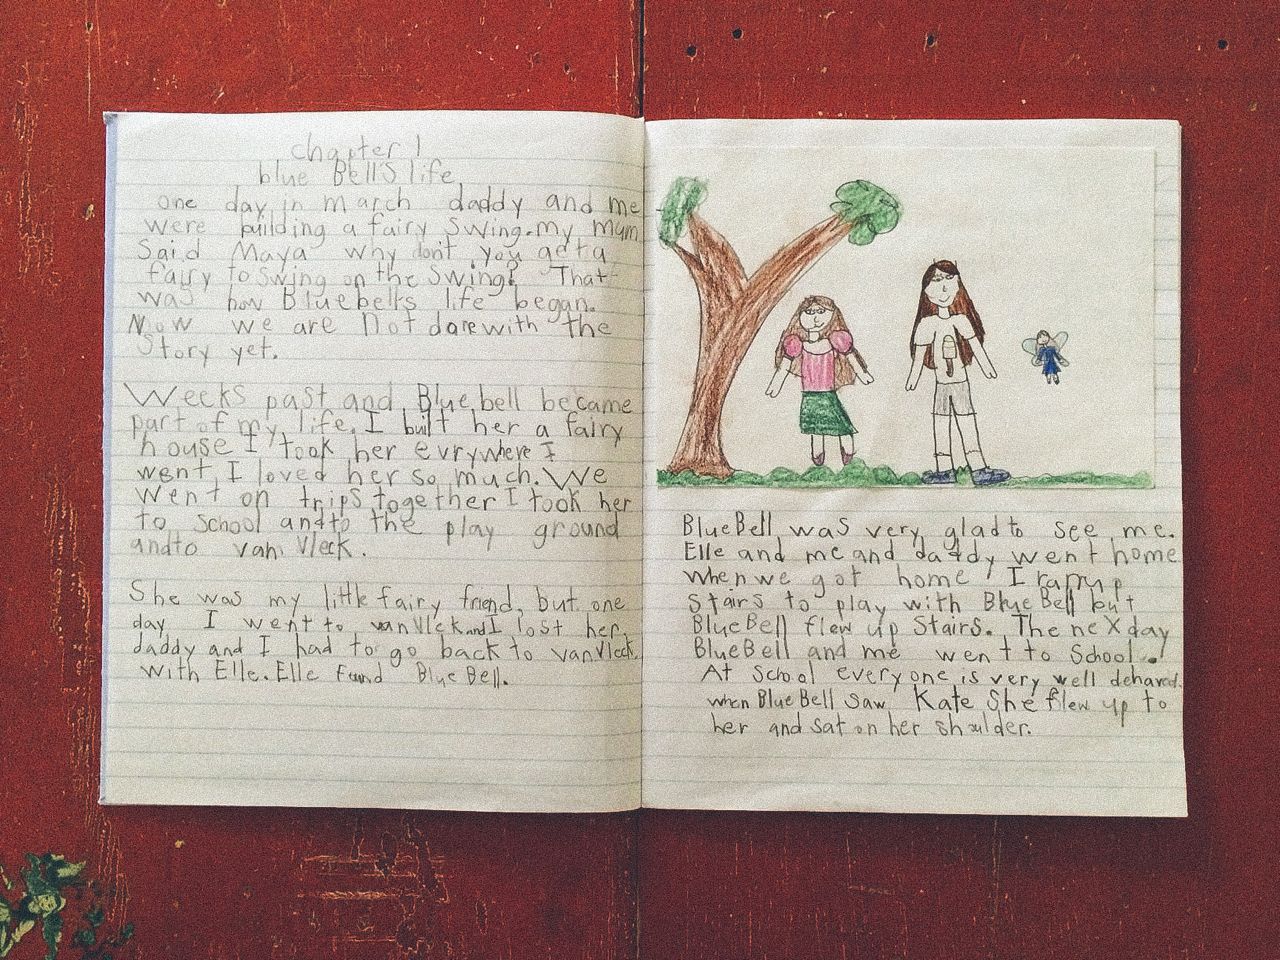 chapter 1
blue Bell's life
one day in march daddy and me
were building a fairy swing. my mum
Said Maya why don't you get a
fairy to swing on the swing? That
was how Bluebells life began.
Now we are not done with the
Story yet.
Weeks past and Bluebell became
part of my life. I built her a fairy
house I took her evrywhere I
went, I loved her so much. We
went on trips together I took her
to school and to the play ground
and to van Vleck.
She was my little fairy friend, but one
day I went to van Vleck and I lost her.
daddy and I had to go back to van Vleck
with Elle. Elle found Blue Bell.
BlueBell was very glad to see me.
Elle and me and daddy went home
when we got home I ran up
stairs to play with BlueBell but
BlueBell flew up stairs. The nex day
BlueBell and me went to School.
At school everyone is very well dehaved.
when BlueBell saw Kate She flew up to
her and sat on her shoulder.